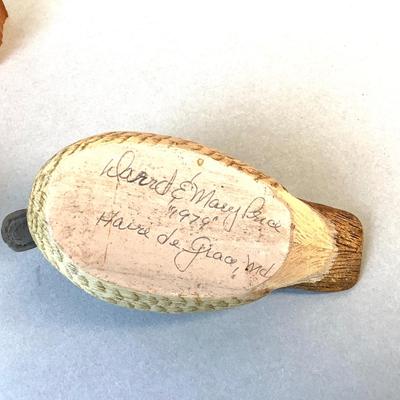 David & Mary Price
"1979"
Havre de Grace, Md